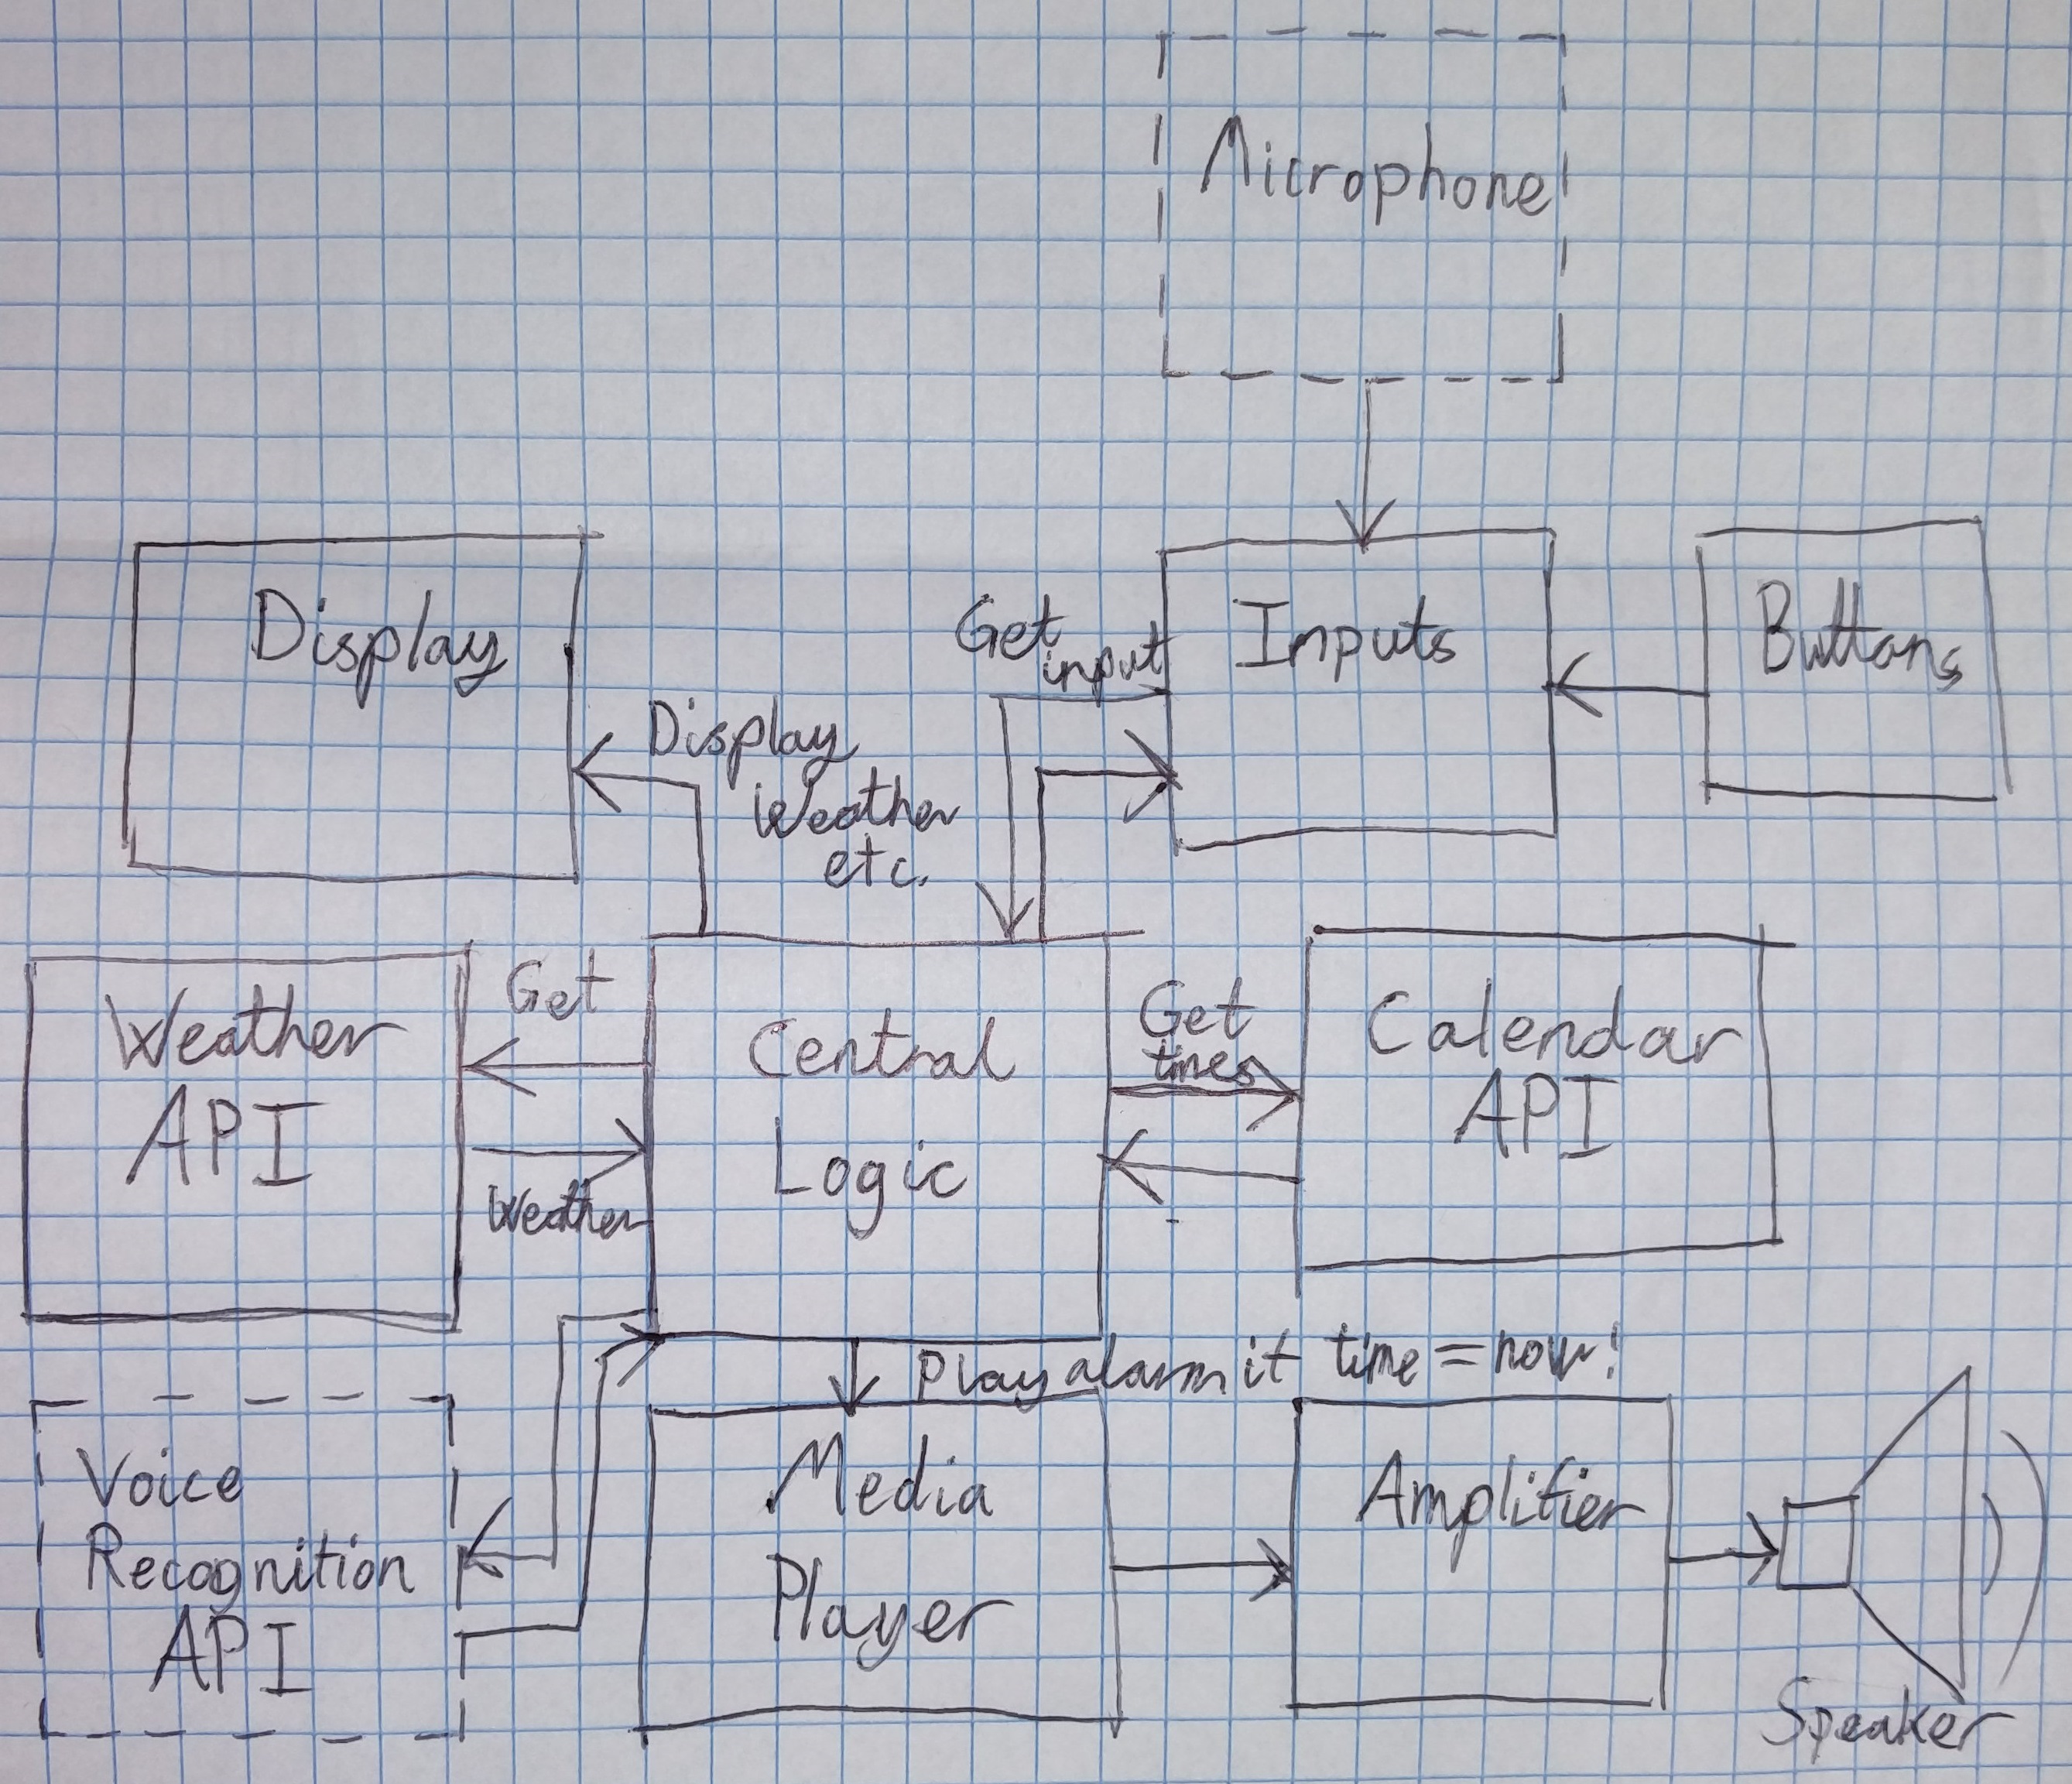 Microphone
Display
Get
input
Inputs
Buttons
Display
Weather
etc.
Weather
API
Get
Weather
Central
Logic
Get
times
Calendar
API
Play alarm if time = now!
Voice
Recognition
API
Media
Player
Amplifier
Speaker